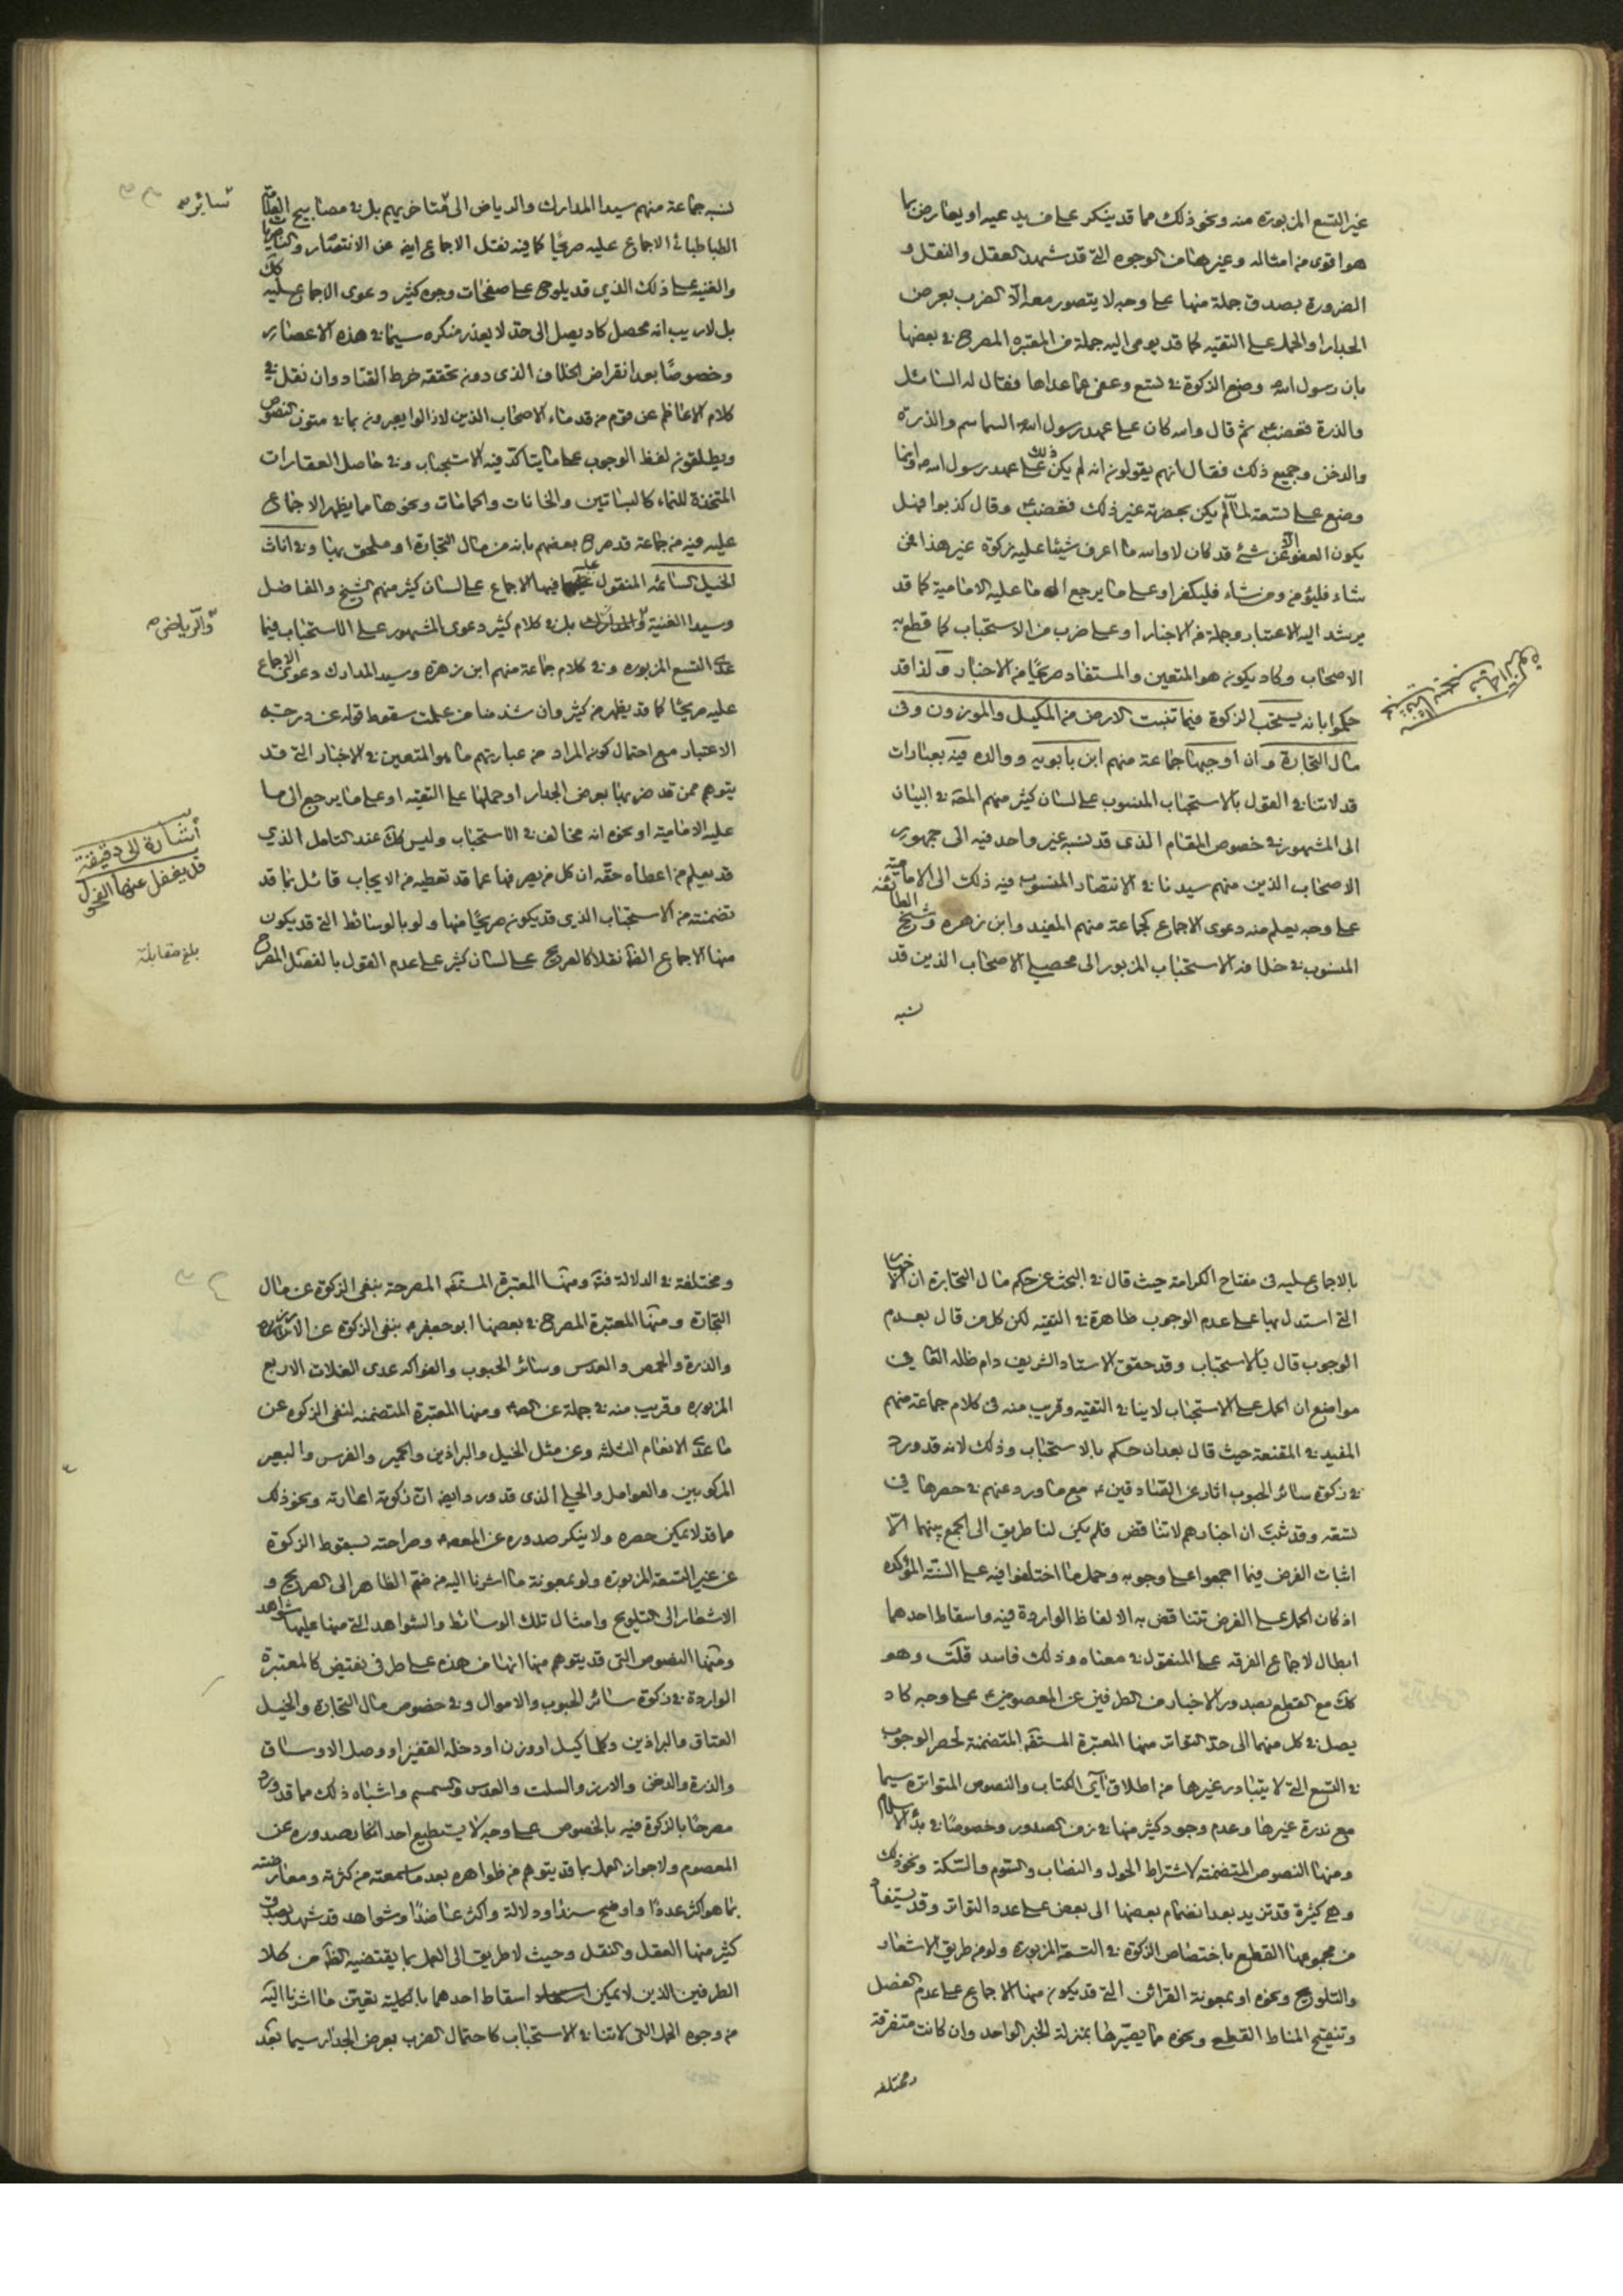 غير التسع المزبورة منه ونحو ذلك مما قد ينكر على من يدعيه او يعارض بما
هو اقوى من امثاله وغيرها من الوجوه التي قد شهد العقل والنقل و
الضرورة بصدق جملة منها على وجه لا يتصور معه الا الضرب بعرض
الجدار او الحمل على التقيه كما قد يومى اليه جملة من المعتبره المصرح في بعضها
بان رسول الله وضع الزكوة في تسع وعفى عما عداها فقال له السائل
والذرة فغضب ثم قال والله كان على عهد رسول الله السماسم والذرة
والدخن وجميع ذلك فقال انهم يقولون انه لم يكن ذلك على عهد رسول الله وانما
وضع على تسعة لما لم يكن بحضرته غير ذلك فغضب وقال كذبوا فهل
يكون العفو الا عن شئ قد كان لا والله ما اعرف شيئا عليه زكوة غير هذا فمن
شاء فليؤمن ومن شاء فليكفر او على ما يرجع الى ما عليه الامامية كما قد
يرشد اليه الاعتبار وجملة من الاخبار او على ضرب من الاستحباب كما قطع به
الاصحاب وكاد يكون هو المتعين والمستفاد صريحا من الاخبار ولذا قد
حكموا بانه يستحب الزكوة فيما تنبت الارض من المكيل والموزون وفي
مال التجارة وان اوجبها جماعة منهم ابن بابويه ووالده فيه بعبارات
قد لا تنافي القول بالاستحباب المنسوب على لسان كثير منهم المقة في البيان
الى المشهور في خصوص المقام الذي قد نسبه غير واحد فيه الى جمهور
الاصحاب الذين منهم سيدنا في الانتصار المنسوب فيه ذلك الى الامامية
على وجه يعلم منه دعوى الاجماع كجماعة منهم المفيد وابن زهرة وشيخ الطائفة
المنسوب في خلافه الاستحباب المزبور الى محصلي الاصحاب الذين قد
نسبه
نسبه جماعة منهم سيد المدارك والرياض الى متاخريهم بل في مصابيح العلامة
الطباطبائي الاجماع عليه صريحا كما فيه نقل الاجماع ايضا عن الانتصار والناصريات
والغنيه على ذلك الذي قد يلوح على صفحات وجوه كثير دعوى الاجماع عليه كك
بل لا ريب انه محصل كاد يصل الى حد لا يعذر منكره سيما في هذه الاعصار
وخصوصا بعد انقراض الخلاف الذي دون تحققه خرط القتاد وان نقل في
كلام الاعاظم عن قوم من قدماء الاصحاب الذين لازالوا يعبرون بما في متون النصوص
ويطلقون لفظ الوجوب على ما يتاكد فيه الاستحباب وفي حاصل العقارات
المتخذة للنماء كالبساتين والخانات والحمامات ونحوها مما يظهر الاجماع
عليه فيه من جماعة قد صرح بعضهم بانه من مال التجارة او ملحق بها وفي اناث
الخيل السائمه المنقول عليه فيها الاجماع على لسان كثير منهم الشيخ والفاضل
وسيد الغنية والمدارك بل في كلام كثير دعوى المشهور على الاستحباب فيما
عدى التسع المزبوره وفي كلام جماعة منهم ابن زهرة وسيد المدارك دعوى الاجماع
عليه صريحا كما قد يظهر من كثير وان شذ منا من علمت سقوط قوله عن درجة
الاعتبار مع احتمال كون المراد من عبارتهم ما هو المتعين في الاخبار التي قد
يتوهم ممن قد ضربها بعرض الجدار او حملها على التقيه او على ما يرجع الى ما
عليه الامامية او نحوه انه مخالف في الاستحباب وليس كك عند التامل الذي
قد يعلم من اعطاه حقه ان كل من يصرفها عما قد تعطيه من الايجاب قائل بما قد
تضمنته من الاستحباب الذي قد يكون صريحا منها ولو بالوسائط التي قد يكون
منها الاجماع نقلا كالصريح على لسان كثير على عدم القول بالفصل المصرح
سائر
والرياض
اشارة الى دقيقة
قل يغفل عنها الفحول
بلغ مقابلة
بالاجماع عليه في مفتاح الكرامة حيث قال في البحث عن حكم مال التجارة ان الاخبار
التي استدل بها على عدم الوجوب ظاهرة في التقيه لكن كل من قال بعدم
الوجوب قال بالاستحباب وقد حقق الاستاد الشريف دام ظله العالي في
مواضع ان الحمل على الاستحباب لا ينافي التقيه وقريب منه في كلام جماعة منهم
المفيد في المقنعة حيث قال بعد ان حكم بالاستحباب وذلك لانه قد ورد
في زكوة سائر الحبوب اثار عن الصادقين مع ما ورد عنهم في حصرها في
تسعه وقد ثبت ان اخبارهم لا تتناقض فلم يكن لنا طريق الى الجمع بينها الا
اثبات الفرض فيما اجمعوا على وجوبه وحمل ما اختلفوا فيه على السنة المؤكده
اذ كان الحمل على الفرض تتناقض به الالفاظ الواردة فيه واسقاط احدهما
ابطال لاجماع الفرقه على المنقول في معناه وذلك فاسد قلت وهو
كك مع القطع بصدور الاخبار من الطرفين عن المعصومين على وجه كاد
يصل في كل منهما الى حد التواتر منها المعتبرة المستفه المتضمنة لحصر الوجوب
في التسع التي لا يتبادر غيرها من اطلاق اي الكتاب والنصوص المتواتره سيما
مع ندرة غيرها وعدم وجود كثير منها في زمن الصدور وخصوصا في بدأ الاسلام
ومنها النصوص المتضمنة لاشتراط الحول والنصاب والسوم والسكة ونحو ذلك
وهي كثيرة قد تزيد بعد انضمام بعضها الى بعض على عدد التواتر وقد يستفاد
من مجموعها القطع باختصاص الزكوة في التسعة المزبورة ولو من طريق الاشعار
والتلويح ونحوه او بمعونة القرائن التي قد يكون منها الاجماع على عدم الفصل
وتنقيح المناط القطعي ونحوه مما يصيرها بمنزلة الخبر الواحد وان كانت متفرقة
ومختلفه
ومختلفة في الدلالة فته ومنها المعتبرة المستفه المصرحة بنفي الزكوة عن مال
التجارة ومنها المعتبرة المصرح في بعضها ابو جعفر بنفي الزكوة عن الارز
والذرة والحمص والعدس وسائر الحبوب والفواكه عدى الغلات الاربع
المزبوره وقريب منه في جملة عن الصم ومنها المعتبرة المتضمنه لنفي الزكوه عن
ما عدى الانعام الثلثة وعن مثل الخيل والبراذين والحمير والفرس والبعير
المركوبين والعوامل والحلي الذي قد ورد ايضا ان زكوته اعارته ونحو ذلك
مما قد لا يمكن حصره ولا ينكر صدوره عن المعصوم وصراحته بسقوط الزكوة
عن غير التسعة المزبورة ولو بمعونة ما اشرنا اليه من ضم الظاهر الى الصريح و
الاشعار الى التلويح وامثال تلك الوسائط والشواهد التي منها عليها شاهد
ومنها النصوص التي قد يتوهم منها انها من هذه على طرفي نقيض كالمعتبرة
الواردة في زكوة سائر الحبوب والاموال وفي خصوص مال التجارة والخيل
العتاق والبراذين وكلما كيل او وزن او دخله القفيز او وصل الاوساق
والذرة والدخن والارز والسلت والعدس والسمسم واشباه ذلك مما قد ورد
مصرحا بالزكوة فيه بالخصوص على وجه لا يستطيع احد انكار صدوره عن
المعصوم ولا جواز العمل بما قد يتوهم من ظواهره بعد ما سمعته من كثرة ومعارضته
بما هو اكثر عددا واوضح سندا ودلالة واكثر عاضدا وشواهد قد شهد بصدق
كثير منها العقل والنقل وحيث لا طريق الى العمل بما يقتضيه الظاهر من كلا
الطرفين الذين لا يمكن اسقاط احدهما بالكلية تعين ما اشرنا اليه
من وجوه الحمل التي لا تنافي الاستحباب كاحتمال الضرب بعرض الجدار سيما بعد